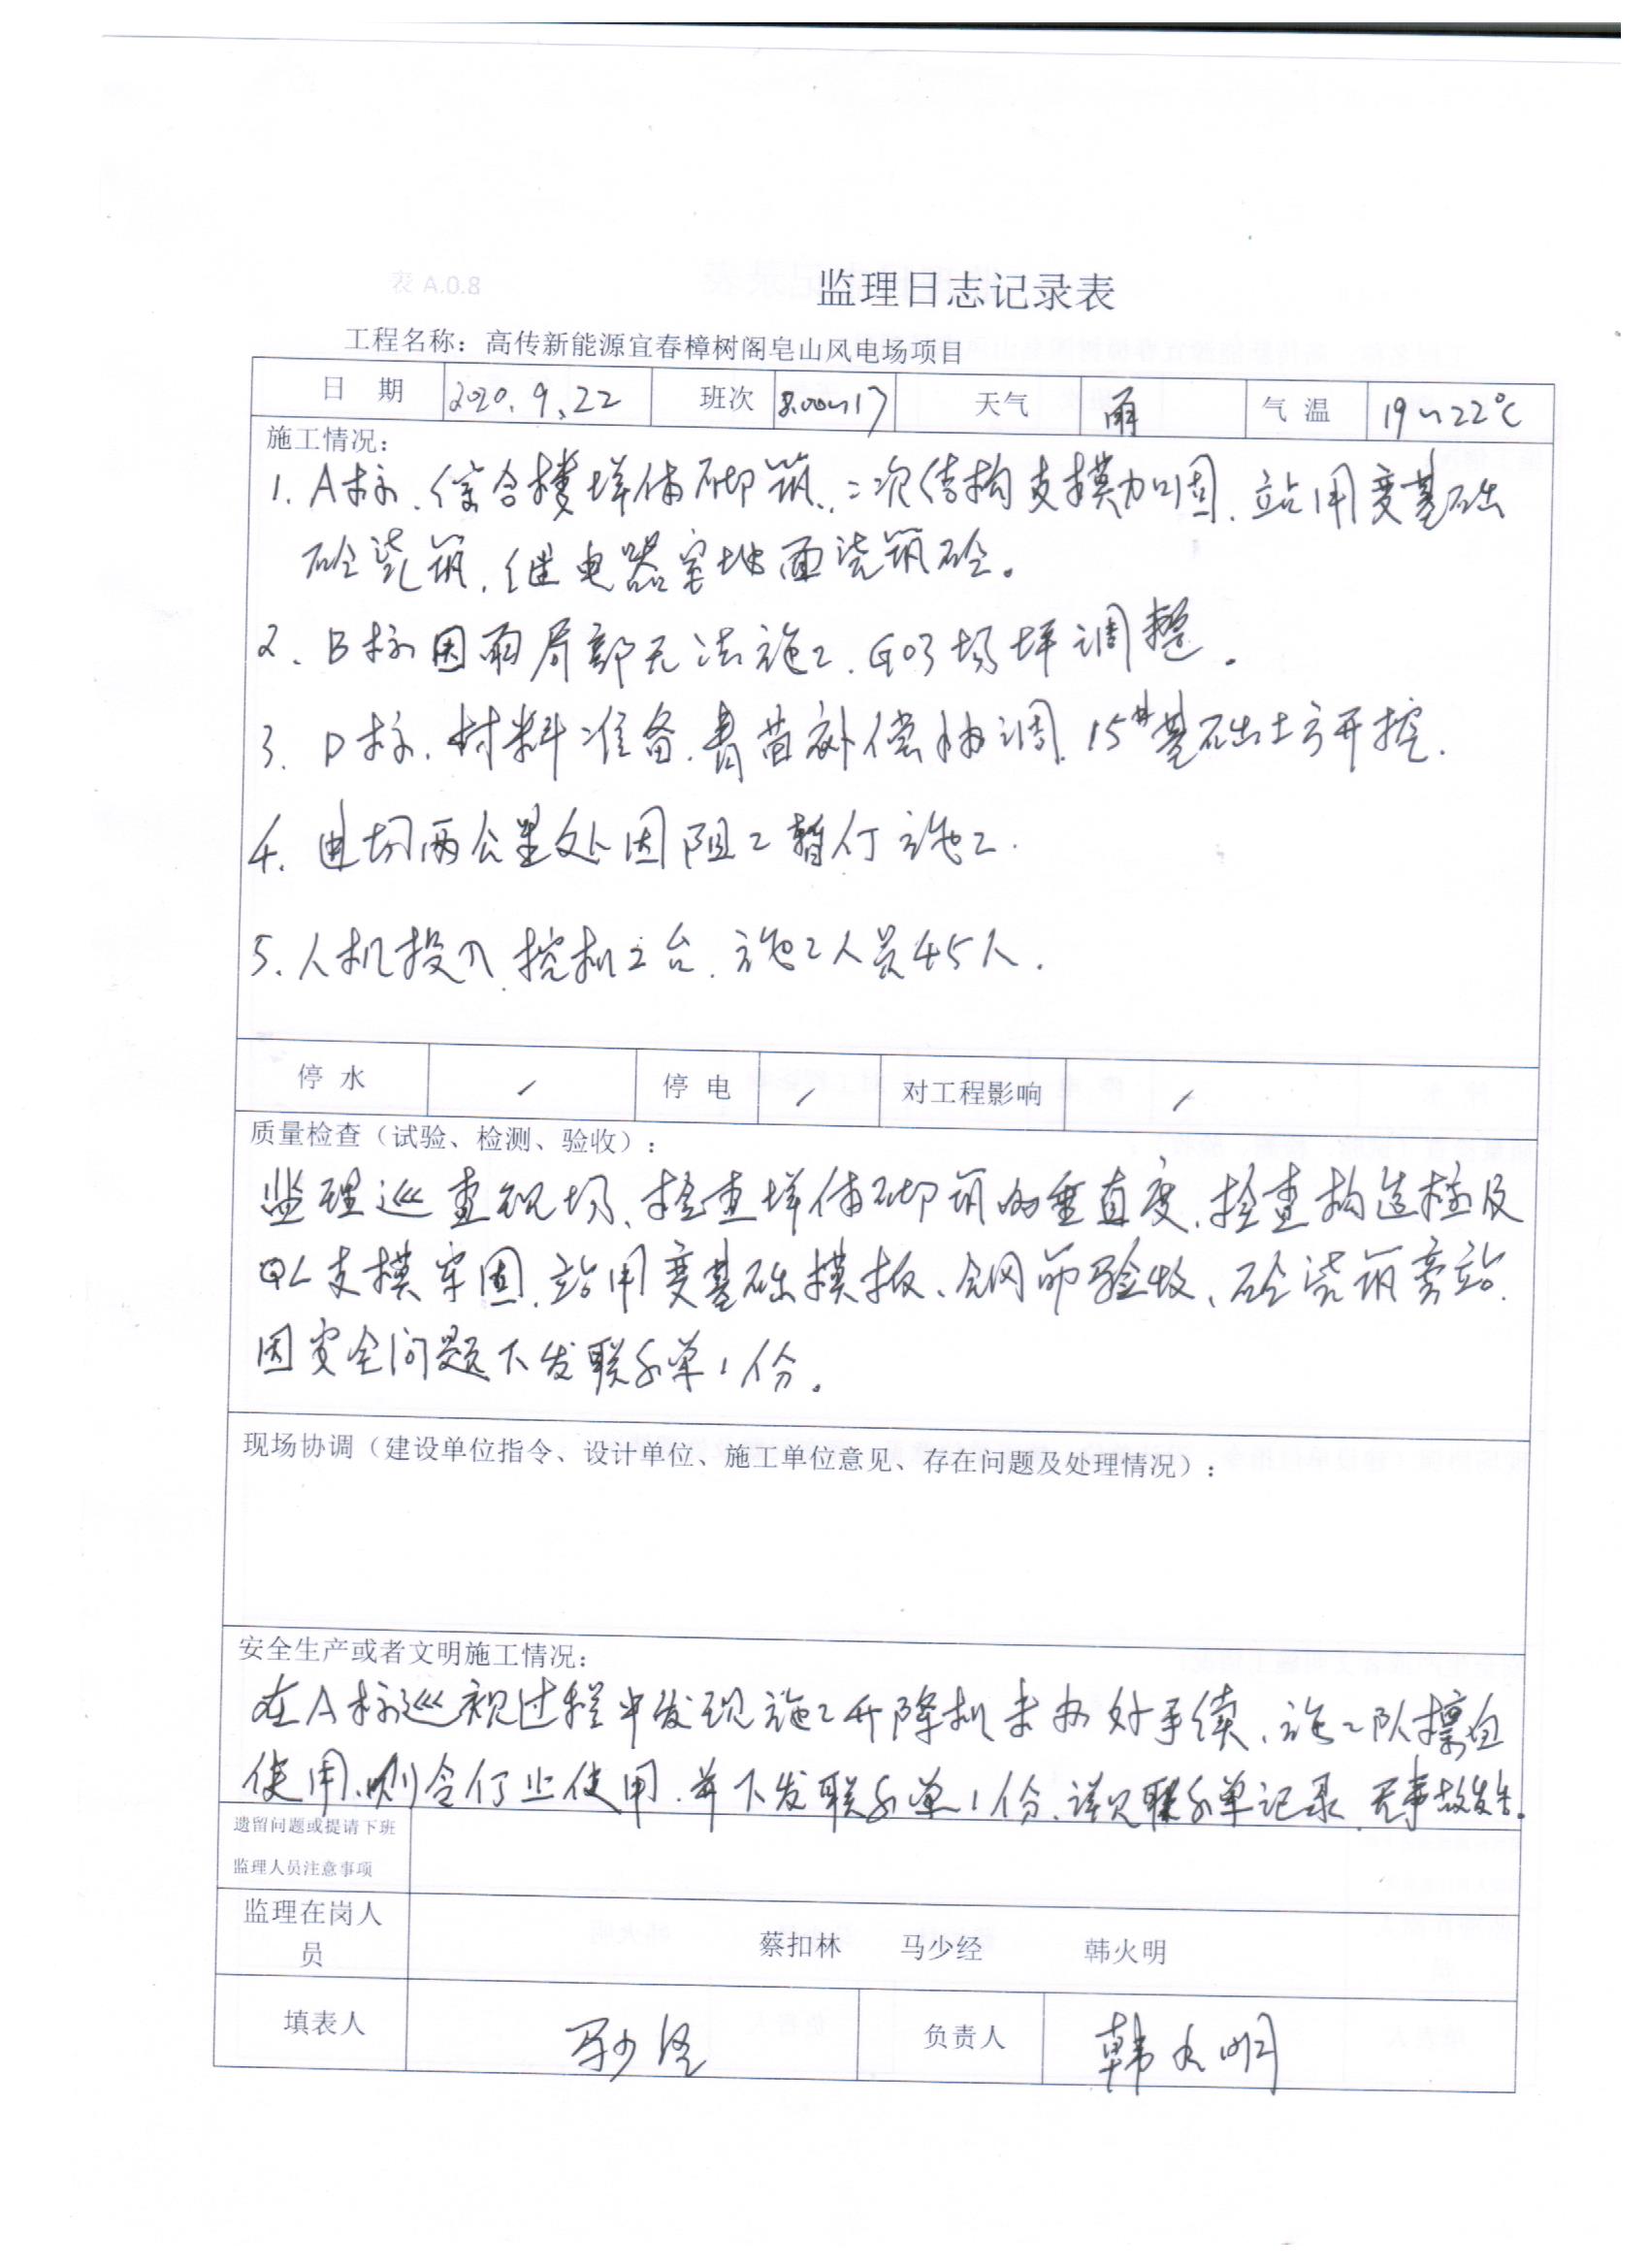 监理日志记录表
工程名称：高传新能源宜春樟树阁皂山风电场项目
日 期 2020.9.22 班次 8.00~17 天气 雨 气 温 19~22℃
施工情况：
1. A标、综合楼墙体砌筑、二次结构支模加固、站用变基础
砼浇筑、继电器室地面浇筑砼。
2、B标因雨局部无法施工、G03场坪调整。
3、D标、材料准备、青苗补偿协调、15#基础土方开挖.
4、进场两公里处因阻工暂停施工.
5、人机投入、挖机2台、施工人员45人.
停 水 / 停 电 / 对工程影响 /
质量检查（试验、检测、验收）：
监理巡查现场、检查墙体砌筑的垂直度、检查构造柱及
QL支模牢固、站用变基础模板、钢筋验收、砼浇筑旁站.
因安全问题下发联系单1份。
现场协调（建设单位指令、设计单位、施工单位意见、存在问题及处理情况）：
安全生产或者文明施工情况：
在A标巡视过程中发现施工升降机未办好手续、施工队擅自
使用、则令停止使用、并下发联系单1份、详见联系单记录、无事故发生。
遗留问题或提请下班
监理人员注意事项
监理在岗人
员 蔡扣林 马少经 韩火明
填表人 马少经 负责人 韩火明